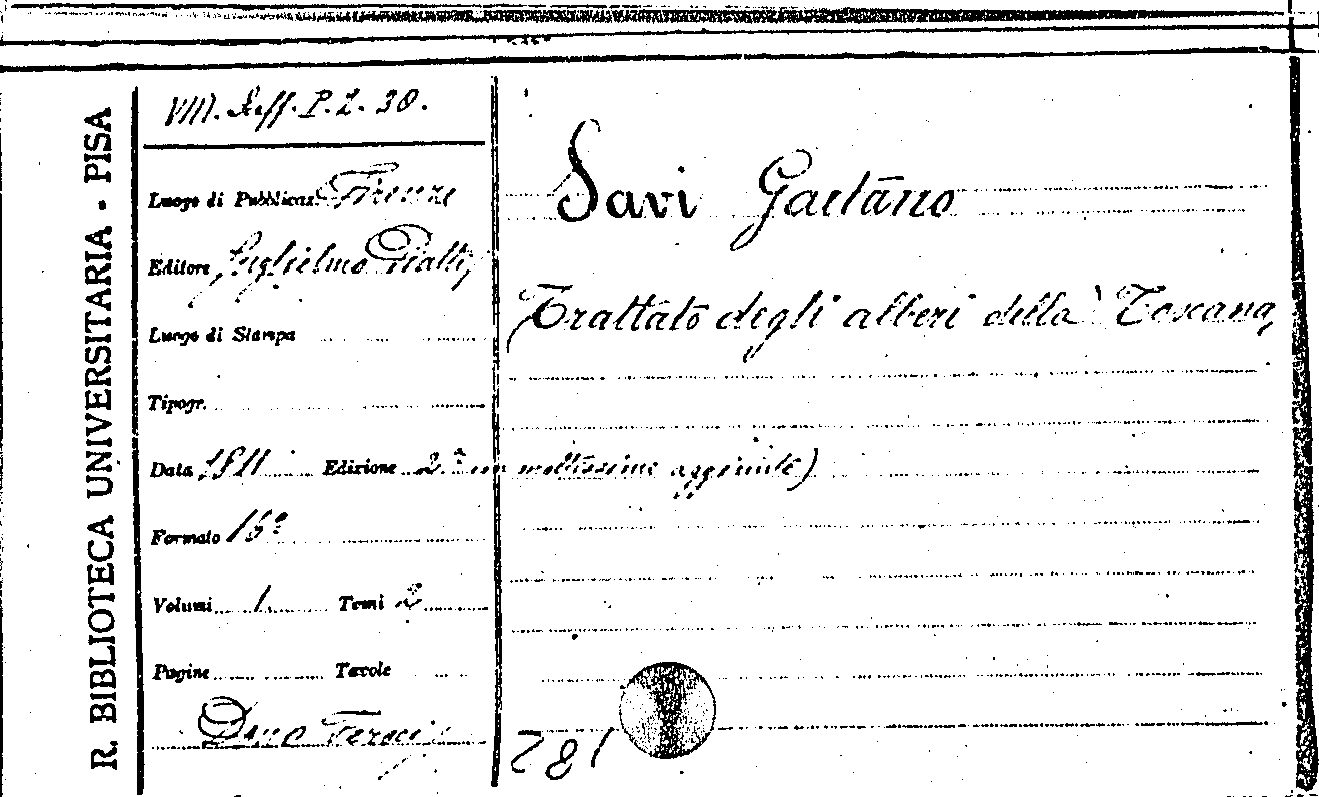 R. BIBLIOTECA UNIVERSITARIA - PISA
VIII. P. 2. 30.
Luogo di Pubblicaz. Firenze
Editore Guglielmo Piatti
Luogo di Stampa
Tipogr.
Data 1811 Edizione 2.ª con moltissime aggiunte)
Formato 16º
Volumi 1. Tomi 2
Pagine Tavole
Dono Feroci
Savi Gaetano
Trattato degli alberi della Toscana,
281